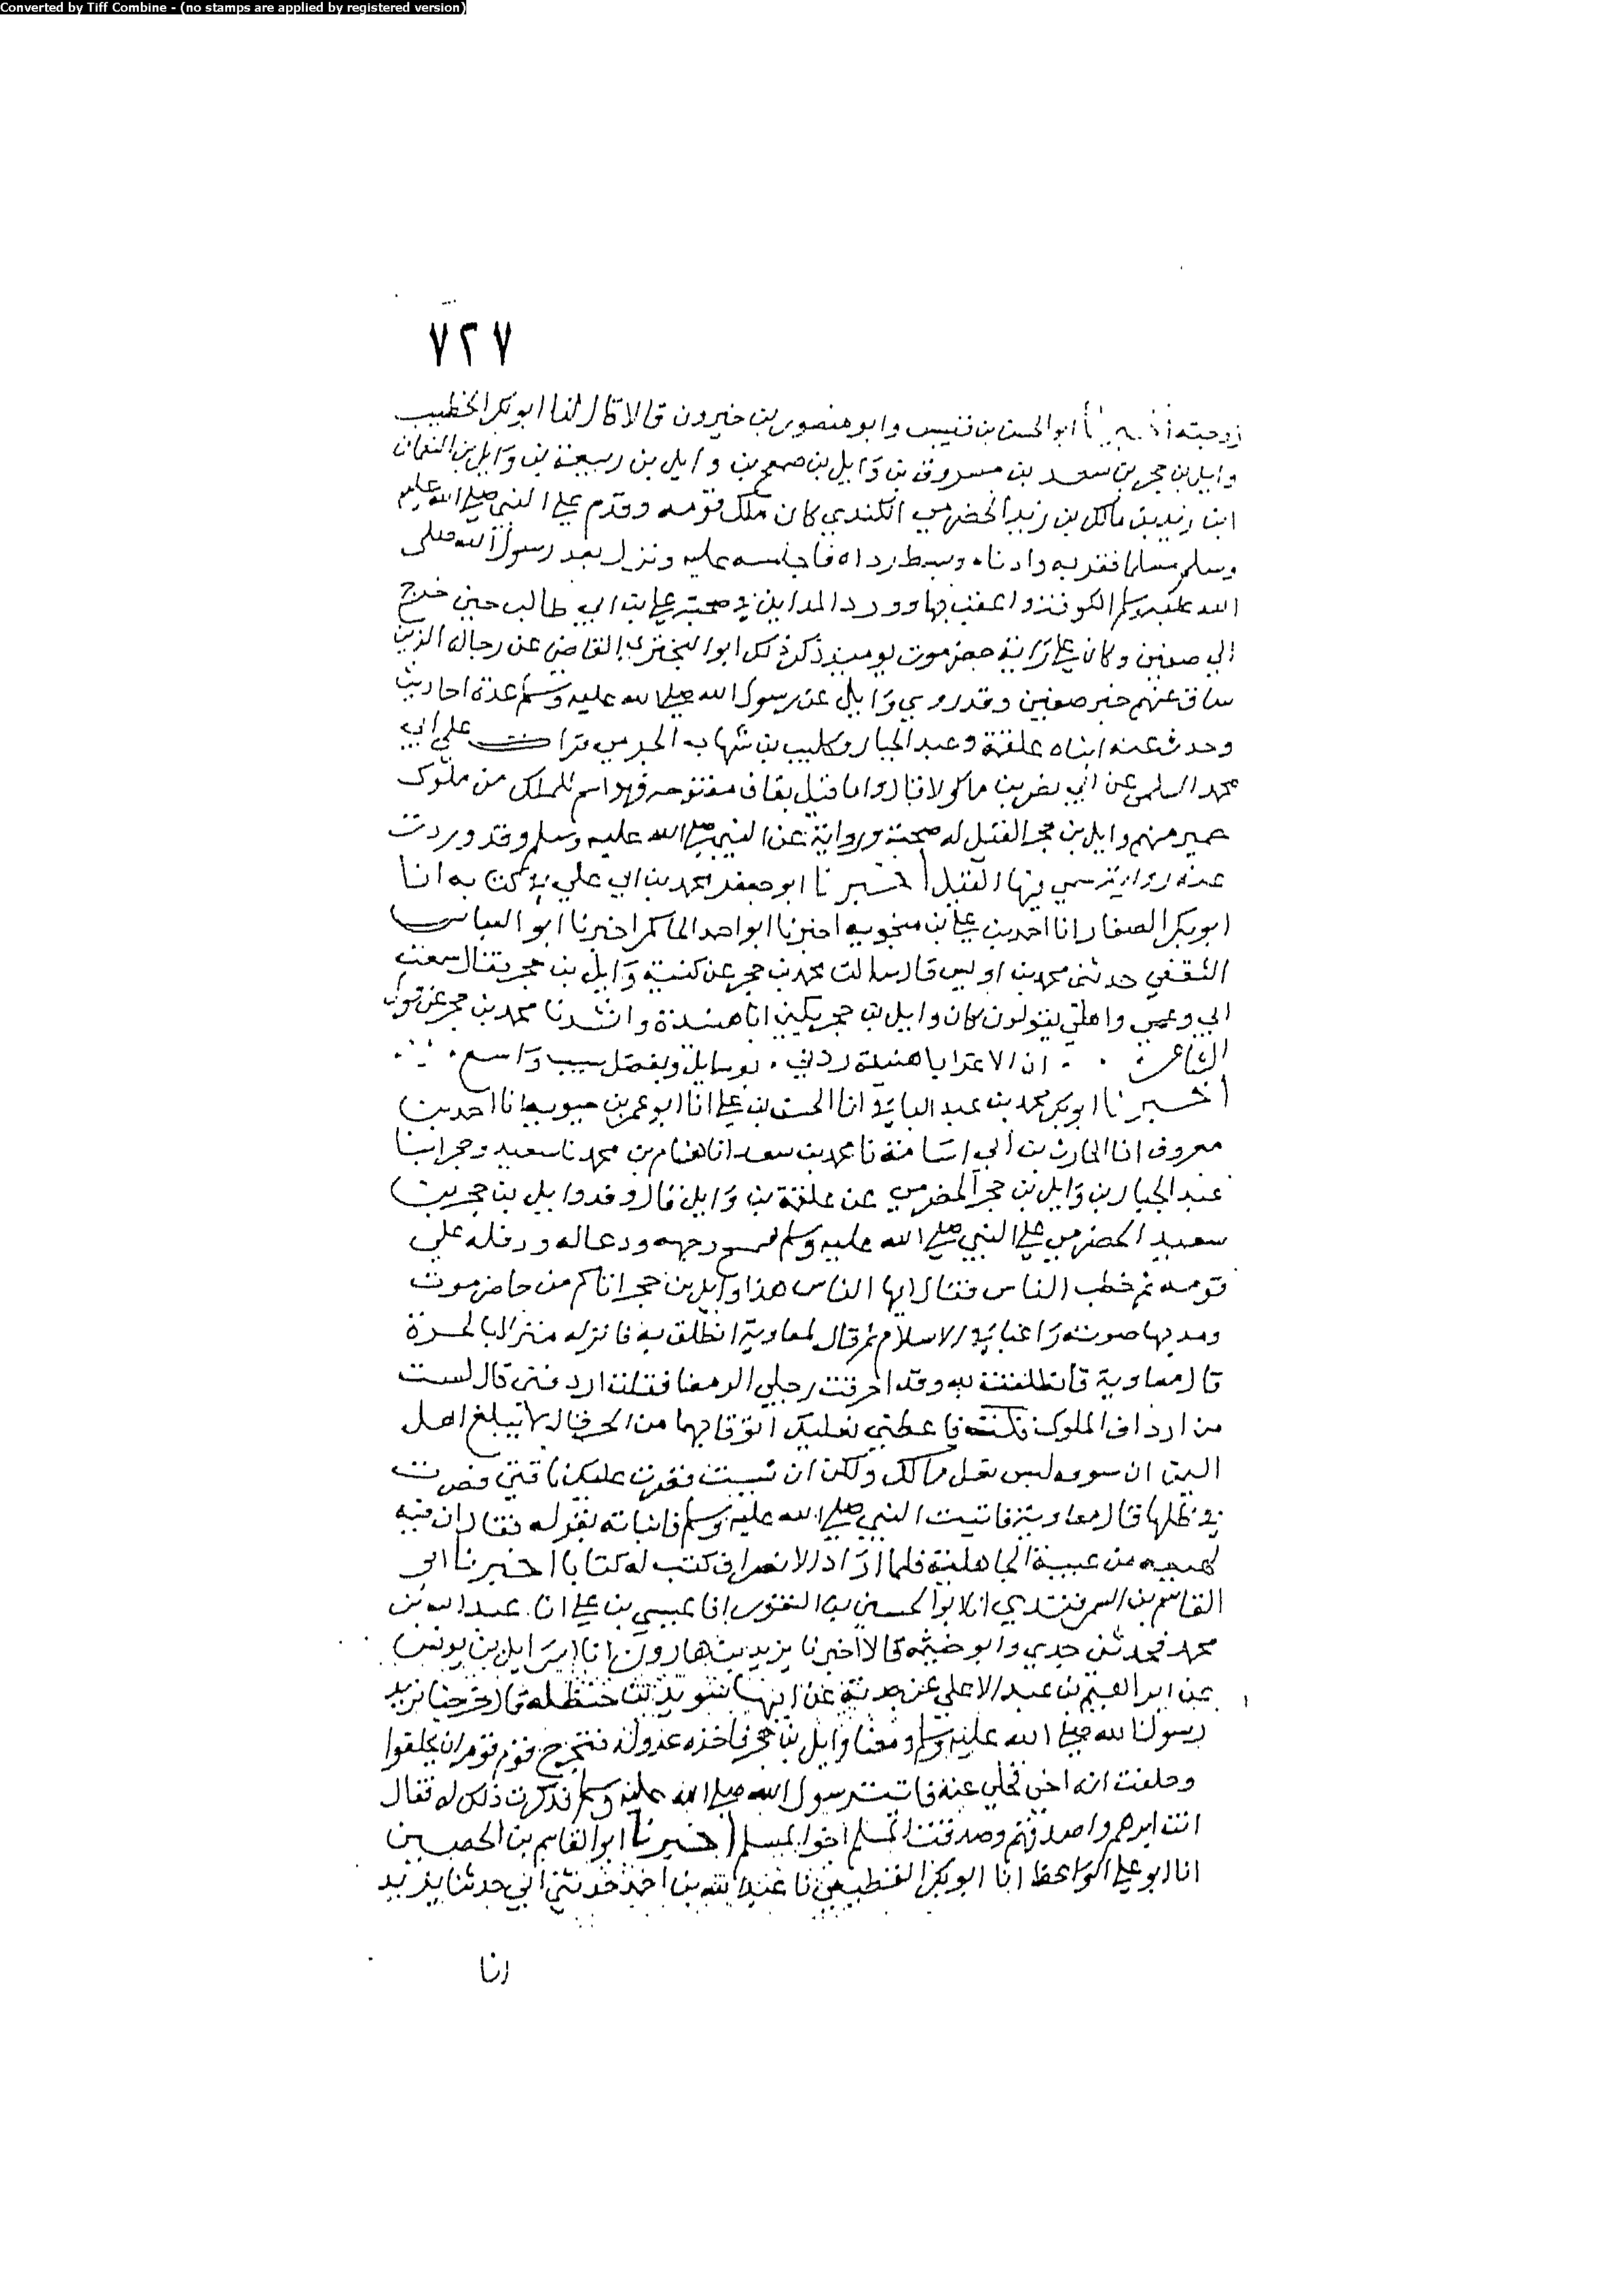 Converted by Tiff Combine - (no stamps are applied by registered version)
٧٢٧
زوجته ابو الحسن بن قبيس وابو منصور بن خيرون قالا قال لنا ابو بكر الخطيب
وايل بن حجر بن سعد بن مسروق بن وَايل بن ضمعج بن وايل بن ربيعة بن وَايل بن النعمان
ابن زيد بن مالك بن زيد الحضرمي الكندي كان ملك قومه وقدم على النبي صلى الله عليه
وسلم مسلما فقربه وادناه وبسط رداه فاجلسه عليه ونزل بعد رسول الله صلى
الله عليه وسلم الكوفة واعقب بها وورد المداين في صحبة علي بن ابي طالب حين خرج
الى صفين وكان على رَاية حضرموت يوميذ ذكر ذلك ابو البختري القاضي عن رجاله الذين
ساق عنهم خبر صفين وقد روي وَايل عن رسول الله صلى الله عليه وسلم عدة احاديث
وحدث عنه ابناه علقمة وعبد الجبار وكليب بن شهاب الجرمي قرات على ابي
محمد السلمي عن ابي نصر بن ماكولا قال واما قيل بقاف مفتوحه فهو اسم للملك من ملوك
حمير منهم وايل بن حجر القيل له صحبة ورواية عن النبي صلى الله عليه وسلم وقد وردت
عنه رواية سمي فيها القيل اخبرنا ابو جعفر محمد بن ابي علي في كتابه انا
ابو بكر الصفار انا احمد بن علي بن منجويه اخبرنا ابو احمد الحاكم اخبرنا ابو العباس
الثقفي حدثني محمد بن اويس قال سالت محمد بن حجر عن كنية وَايل بن حجر فقال سمعت
ابي وعمي واهلي يقولون كان وايل بن حجر يكني ابا هنيدة وانشدنا محمد بن حجر عن قول
الشاعر ان الاغر ابا هنيدة ردني بوسايل وبفضل سيب وَاسع
اخبرنا ابو بكر محمد بن عبد الباقي انا الحسن بن علي انا ابو عمر بن حيويه انا احمد بن
معروف انا الحارث بن ابي اسَامة نا محمد بن سعد انا هشام بن محمد نا سعيد وحجر ابنا
عبد الجبار بن وَايل بن حجر الحضرمي عن علقمة بن وَايل قال وفد وايل بن حجر بن
سعيد الحضرمي على النبي صلى الله عليه وسلم فمسح وجهه ودعا له ورفله على
قومه ثم خطب الناس فقال ايها الناس هذا وَايل بن حجر اتاكم من حضرموت
ومد بها صوته رَاغبا في الاسلام ثم قال لمعاوية انطلق به فانزله منزلا بالحرة
قال معاوية فانطلقت به وقد احرقت رجلي الرمضا فقلت اردفني قال لست
من ارداف الملوك قلت فاعطني نعليك اتوقا بهما من الحر قال لا يبلغ اهل
اليمن ان سوقه لبس نعل ملك ولكن ان شيت قصرت عليك ناقتي فسرت
في ظلها قال معاوية فاتيت النبي صلى الله عليه وسلم فانباته بقوله فقال ان فيه
لعبيه من عبية الجاهلية فلما ارَاد الانصراف كتب له كتابا اخبرنا ابو
القاسم بن السمرقندي انا ابو الحسين بن النقور انا عيسى بن علي انا عبد الله بن
محمد حدثني جدي وابو خيثمه قالا اخبرنا يزيد بن هارون انا اسرَايل بن يونس
عن ابراهيم بن عبد الاعلى عن جدته عن ابيها سويد بن حنظله قال خرجنا نريد
رسول الله صلى الله عليه وسلم ومعنا وَايل بن حجر فاخذه عدو له فتحرج قوم ان يحلفوا
وحلفت انه اخي فخلي عنه فاتيت رسول الله صلى الله عليه وسلم فذكرت ذلك له فقال
انت ابرهم واصدقهم وصدقت المسلم اخو المسلم اخبرنا ابو القاسم بن الحصين
انا ابو علي الوَاعظ انا ابو بكر القطيعي نا عبد الله بن احمد حدثني ابي حدثنا يزيد
انا